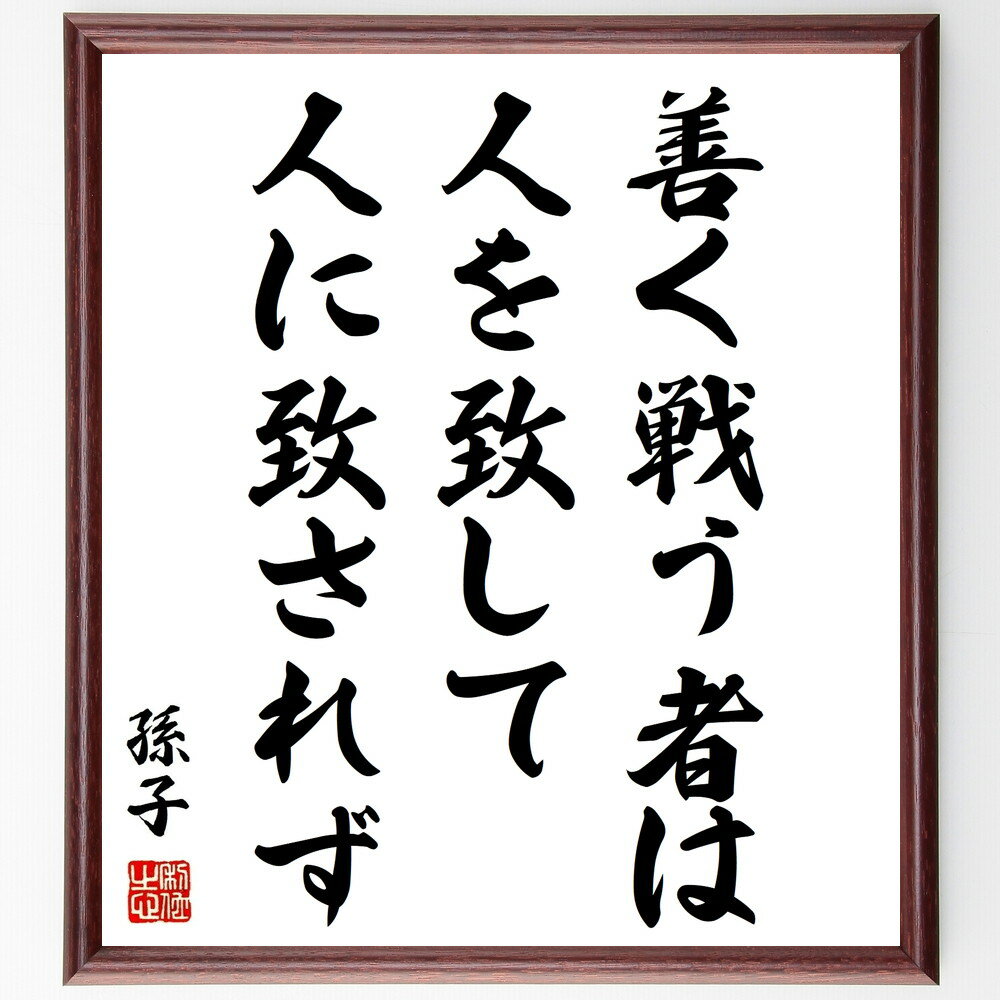 善く戦う者は
人を致して
人に致されず
孫子